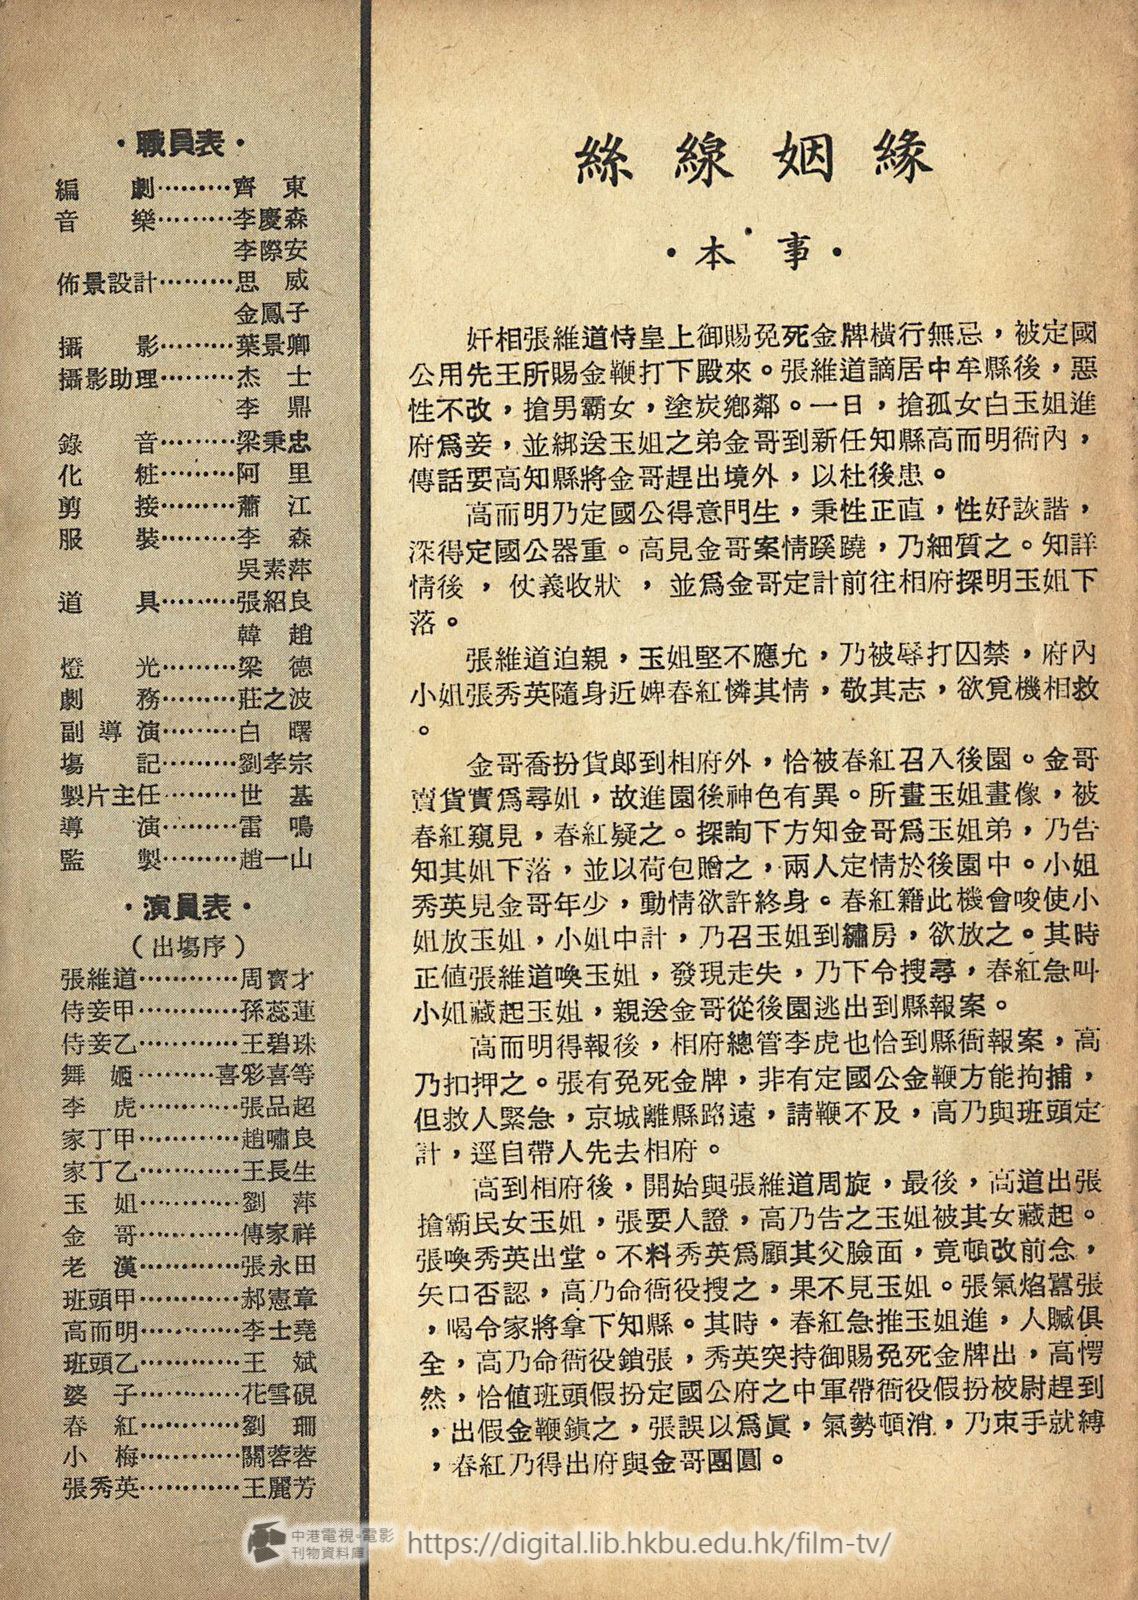 ·職員表·
編　　劇………齊　東
音　　樂………李慶森
李際安
佈景設計………思　威
金鳳子
攝　　影………葉景卿
攝影助理………杰　士
李　鼎
錄　　音………梁秉忠
化　　粧………阿　里
剪　　接………蕭　江
服　　裝………李　森
吳素萍
道　　具………張紹良
韓　趙
燈　　光………梁　德
劇　　務………莊之波
副 導 演………白　曙
塲　　記………劉孝宗
製片主任………世　基
導　　演………雷　鳴
監　　製………趙一山
·演員表·
（出塲序）
張維道…………周實才
侍妾甲…………孫蕊蓮
侍妾乙…………王碧珠
舞　姬………喜彩喜等
李　虎…………張品超
家丁甲…………趙嘯良
家丁乙…………王長生
玉　姐…………劉　萍
金　哥…………傅家祥
老　漢…………張永田
班頭甲…………郝憲章
高而明…………李士堯
班頭乙…………王　斌
婆　子…………花雪硯
春　紅…………劉　珊
小　梅…………關蓉蓉
張秀英…………王麗芳
絲線姻緣
·本事·
奸相張維道恃皇上御賜免死金牌橫行無忌，被定國
公用先王所賜金鞭打下殿來。張維道謫居中牟縣後，惡
性不改，搶男霸女，塗炭鄉鄰。一日，搶孤女白玉姐進
府爲妾，並綁送玉姐之弟金哥到新任知縣高而明衙內，
傳話要高知縣將金哥趕出境外，以杜後患。
高而明乃定國公得意門生，秉性正直，性好詼諧，
深得定國公器重。高見金哥案情蹊蹺，乃細質之。知詳
情後，仗義收狀，並爲金哥定計前往相府探明玉姐下
落。
張維道迫親，玉姐堅不應允，乃被辱打囚禁，府內
小姐張秀英隨身近婢春紅憐其情，敬其志，欲覓機相救
。
金哥喬扮貨郎到相府外，恰被春紅召入後園。金哥
賣貨實爲尋姐，故進園後神色有異。所畫玉姐畫像，被
春紅窺見，春紅疑之。探詢下方知金哥爲玉姐弟，乃告
知其姐下落，並以荷包贈之，兩人定情於後園中。小姐
秀英見金哥年少，動情欲許終身。春紅籍此機會唆使小
姐放玉姐，小姐中計，乃召玉姐到繡房，欲放之。其時
正値張維道喚玉姐，發現走失，乃下令搜尋，春紅急叫
小姐藏起玉姐，親送金哥從後園逃出到縣報案。
高而明得報後，相府總管李虎也恰到縣衙報案，高
乃扣押之。張有免死金牌，非有定國公金鞭方能拘捕，
但救人緊急，京城離縣路遠，請鞭不及，高乃與班頭定
計，逕自帶人先去相府。
高到相府後，開始與張維道周旋，最後，高道出張
搶霸民女玉姐，張要人證，高乃告之玉姐被其女藏起。
張喚秀英出堂。不料秀英爲顧其父臉面，竟頓改前念，
矢口否認，高乃命衙役搜之，果不見玉姐。張氣焰囂張
，喝令家將拿下知縣。其時，春紅急推玉姐進，人贓俱
全，高乃命衙役鎖張，秀英突持御賜免死金牌出，高愕
然，恰値班頭假扮定國公府之中軍帶衙役假扮校尉趕到
，出假金鞭鎭之，張誤以爲眞，氣勢頓消，乃束手就縛
，春紅乃得出府與金哥團圓。
中港電視·電影
刊物資料庫
https://digital.lib.hkbu.edu.hk/film-tv/